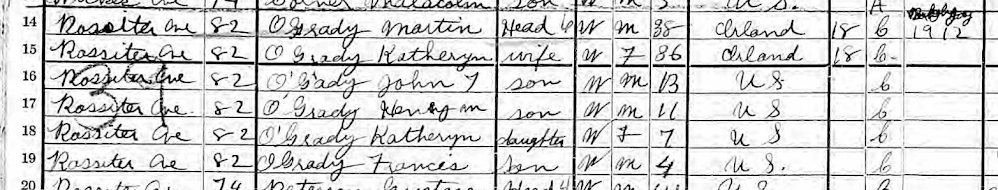 Malcolm son W M 3 U.S. A
14 Rossiter Ave 82 O'Grady Martin Head 6 W M 38 Irland 18 C 1912
15 Rossiter Ave 82 O'Grady Katheryn wife W F 36 Irland 18 C
16 Rossiter Ave 82 O'Gady John F son W M 13 U S C
17 Rossiter Ave 82 O'Grady Henry M son W M 11 U S C
18 Rossiter Ave 82 O'Grady Katheryn daughter W F 7 U S C
19 Rossiter Ave 82 O'Grady Francis Son W M 4 U S. C
20 74 Head 4 W M U S